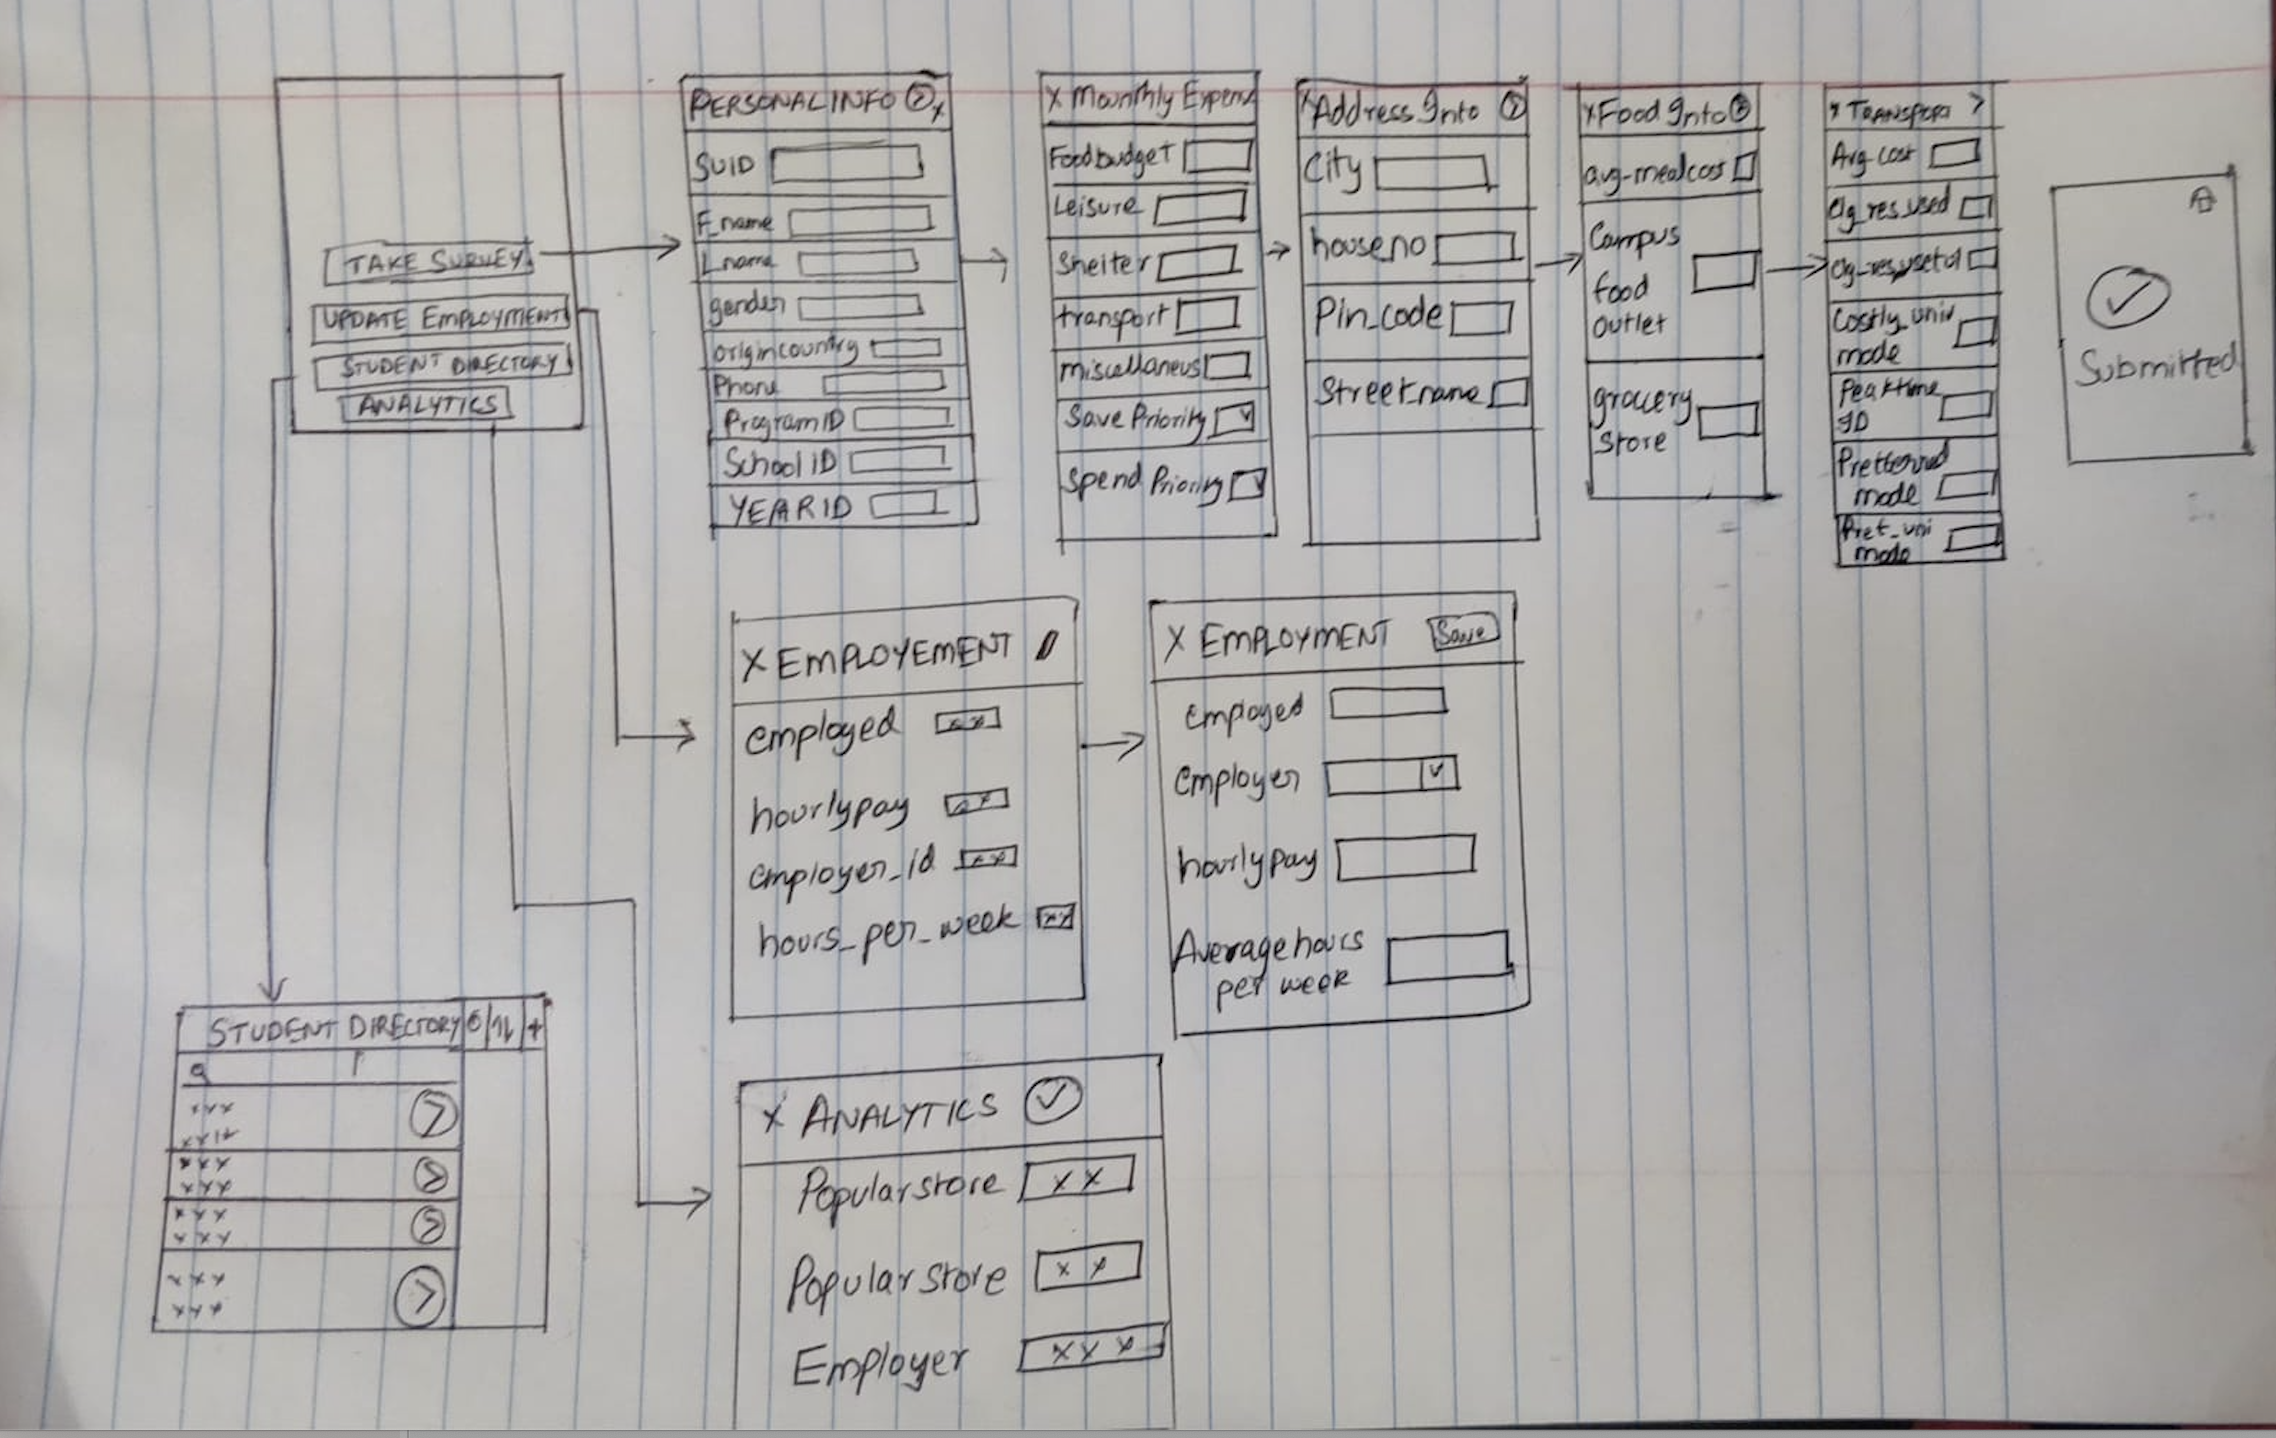 TAKE SURVEY
UPDATE EMPLOYMENT
STUDENT DIRECTORY
ANALYTICS
PERSONAL INFO > x
SUID
F_name
L_name
gender
origincountry
Phone
Program ID
School ID
YEAR ID
X Mounthly Expens
Foodbudget
Leisure
Shelter
transport
miscellaneus
Save Priority
Spend Priority
X Address Info >
City
houseno
Pin_code
Street_name
X Food Info >
avg-mealcost
Campus
food
outlet
grocery
store
X TRANSPORT >
Avg-cost
clg_res_used
clg_res_useful
Costly_univ
mode
Peaktime
ID
Preffered
mode
Pref_uni
mode
Submitted
X EMPLOYEMENT
employed xx
hourlypay xx
employer_id xx
hours_per_week xx
X EMPLOYMENT Save
employed
employer
hourlypay
Average hours
per week
STUDENT DIRECTORY +
xxx >
xxx
xxx >
xxx
xxx >
xxx >
xxx
X ANALYTICS
Popular store xx
Popular store xx
Employer xxx